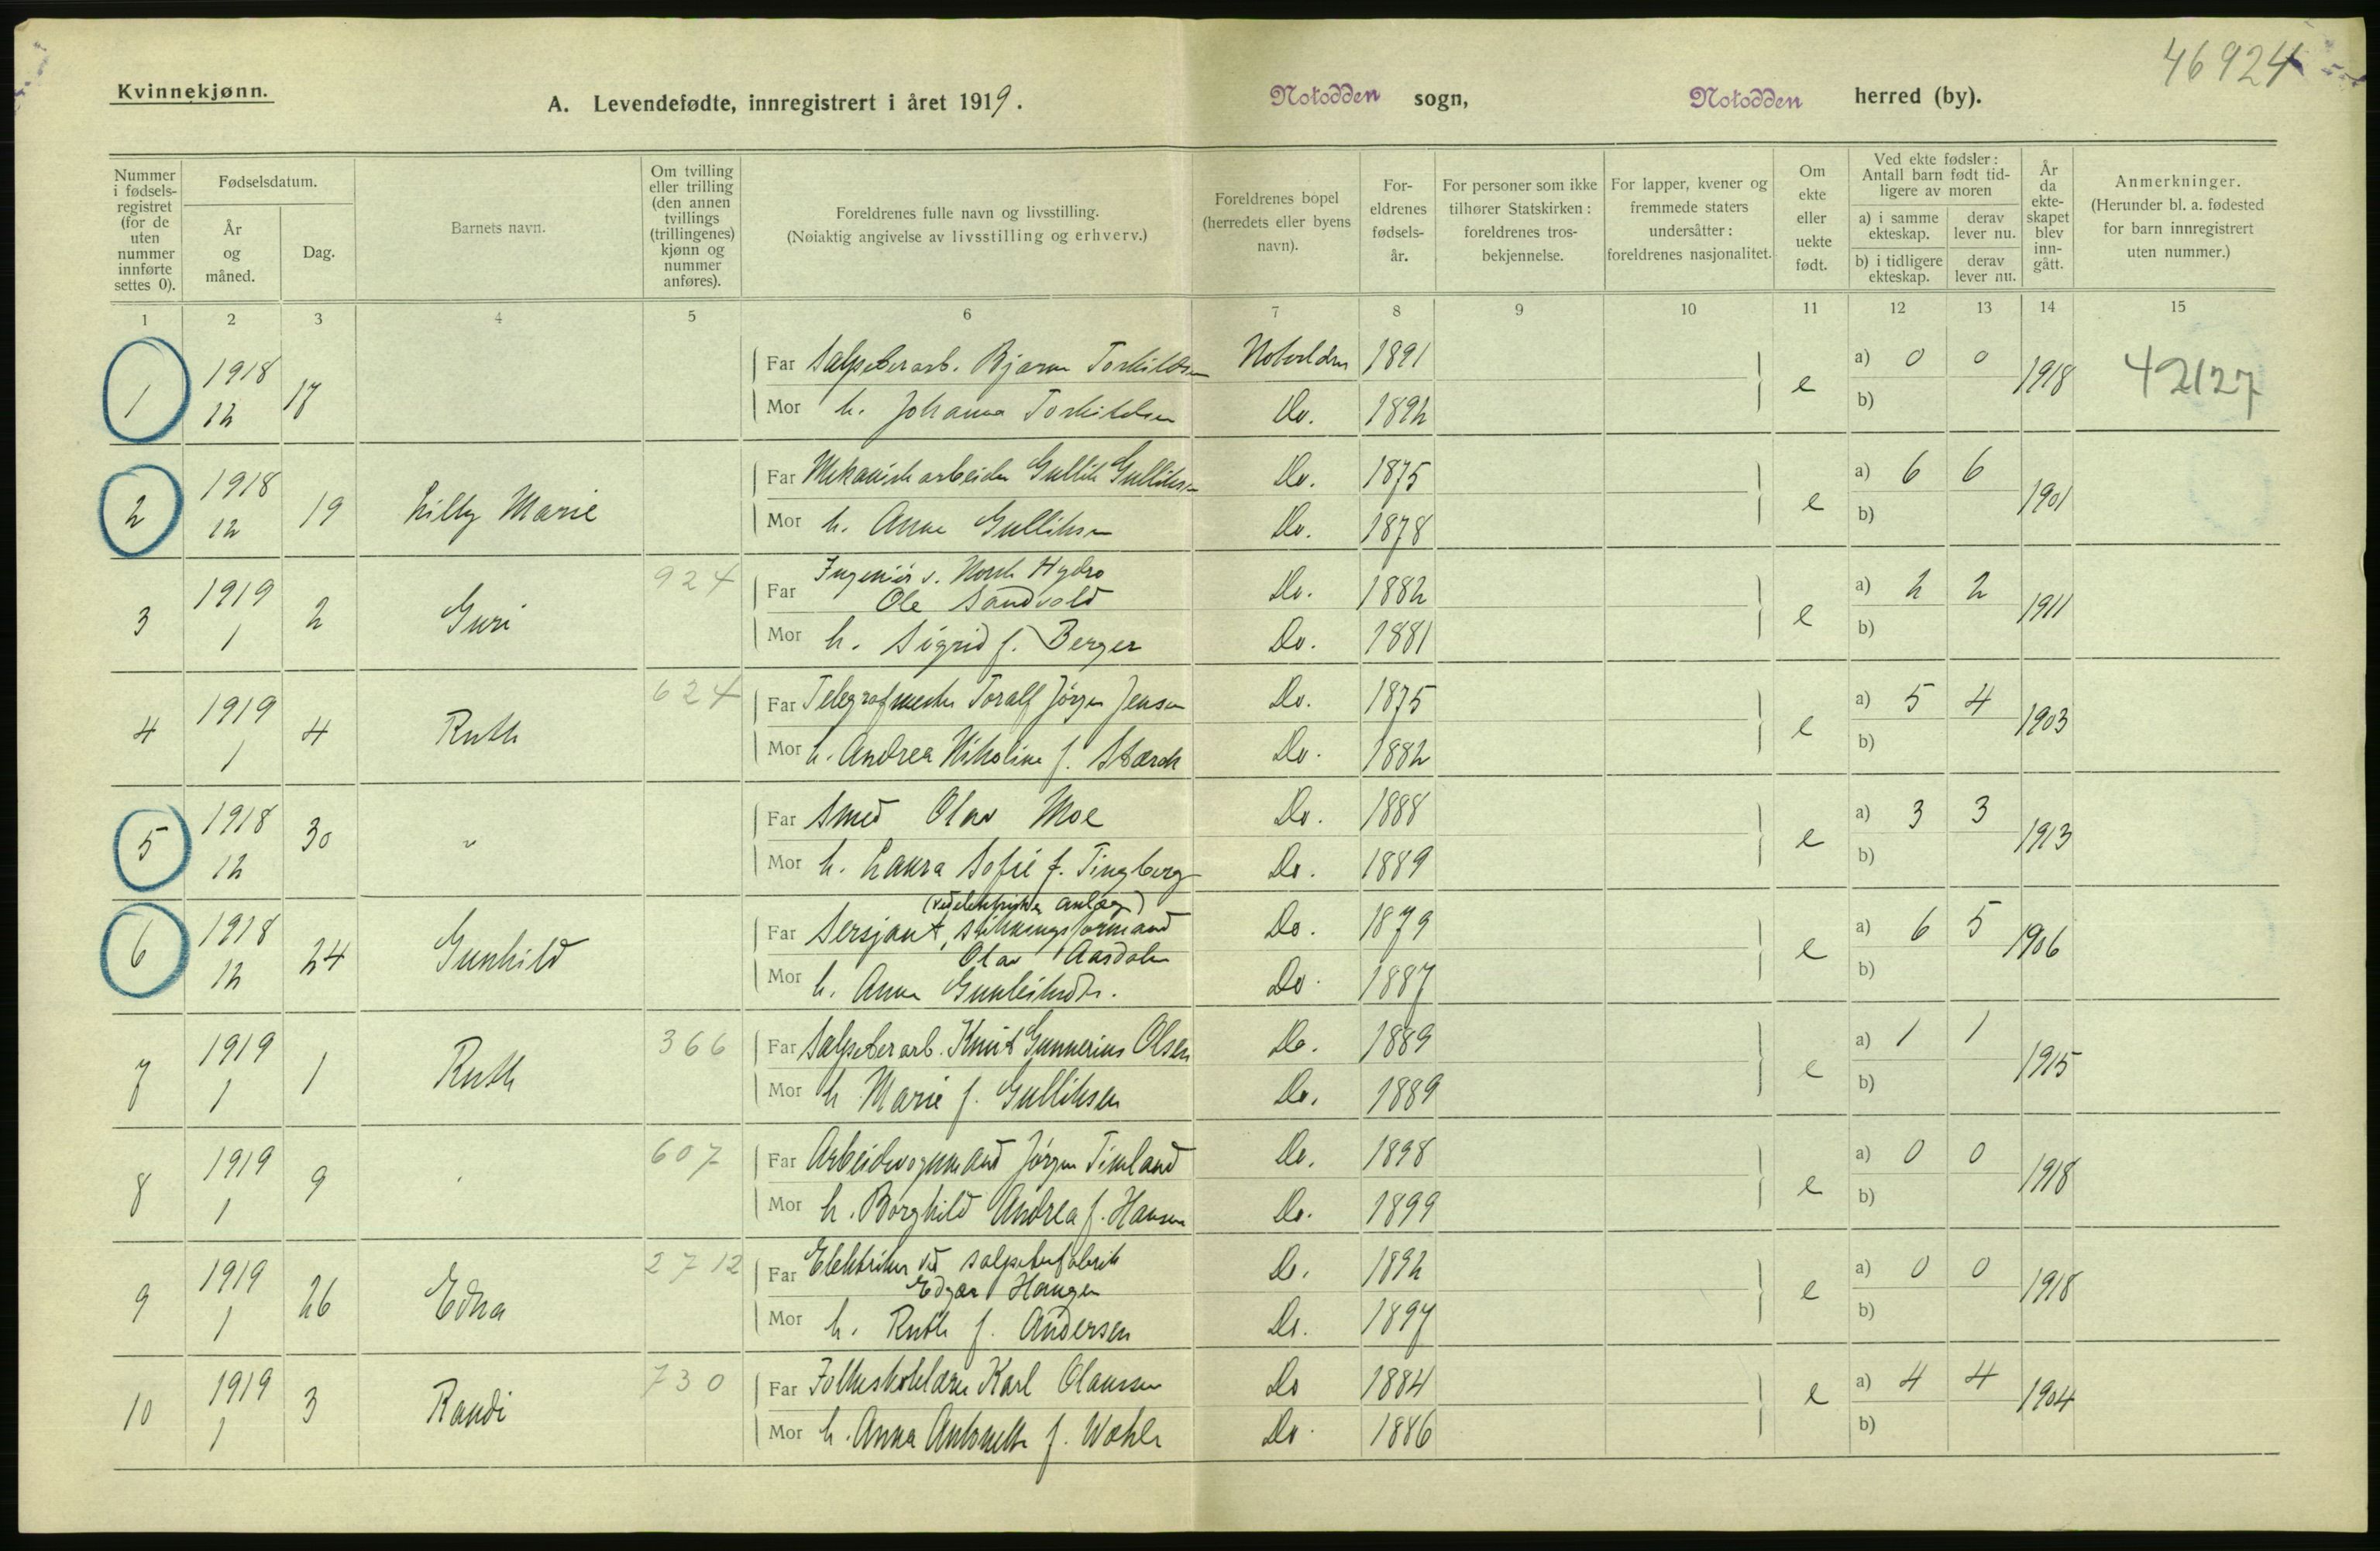 46924
Kvinnekjønn.
A. Levendefødte, innregistrert i året 1919.
Notodden sogn,
Notodden herred (by).
Nummer i fødsels-registret (for de uten nummer innførte settes 0).
Fødselsdatum.
År og måned.
Dag.
Barnets navn.
Om tvilling eller trilling (den annen tvillings (trillingenes) kjønn og nummer anføres).
Foreldrenes fulle navn og livsstilling.
(Nøiaktig angivelse av livsstilling og erhverv.)
Foreldrenes bopel (herredets eller byens navn).
For-eldrenes fødsels-år.
For personer som ikke tilhører Statskirken: foreldrenes tros-bekjennelse.
For lapper, kvener og fremmede staters undersåtter: foreldrenes nasjonalitet.
Om ekte eller uekte født.
Ved ekte fødsler: Antall barn født tid-ligere av moren
a) i samme ekteskap.
derav lever nu.
b) i tidligere ekteskap.
derav lever nu.
År da ekte-skapet blev inn-gått.
Anmerkninger.
(Herunder bl. a. fødested for barn innregistrert uten nummer.)
1 2 3 4 5 6 7 8 9 10 11 12 13 14 15
1 1918 12 17 Far Salpeterarb. Bjarne Torkildsen Notodden 1891 e a) 0 0 1918 42127
Mor h. Johanna Torkildsen Do. 1892 b)
2 1918 12 19 Lilly Marie Far Mekanisk arbeider Gullik Gulliksen Do. 1875 e a) 6 6 1901
Mor h. Anne Gulliksen Do. 1878 b)
3 1919 1 2 Guri 924 Far Ingeniør v. Norsk Hydro
Ole Sandvold Do. 1882 e a) 2 2 1911
Mor h. Sigrid f. Berger Do. 1881 b)
4 1919 1 4 Ruth 624 Far Telegrafmester Toralf Jørgen Jensen Do. 1875 e a) 5 4 1903
Mor h. Andrea Nikoline f. Stærk Do. 1882 b)
5 1918 12 30 " Far Smed Olav Moe Do. 1888 e a) 3 3 1913
Mor h. Laura Sofie f. Tingberg Do. 1889 b)
(ved elektriske anlæg)
6 1918 12 24 Gunhild Far Sersjant, stikningsformand
Olav Aasdalen Do. 1879 e a) 6 5 1906
Mor h. Anna Gunleiksdtr. Do. 1887 b)
7 1919 1 1 Ruth 366 Far Salpeterarb. Knut Gunnerius Olsen Do. 1889 e a) 1 1 1915
Mor h Marie f. Gulliksen Do. 1889 b)
8 1919 1 9 607 Far Arbeidsvognmand Jørgen Timland Do. 1898 e a) 0 0 1918
Mor h. Borghild Andrea f. Hansen Do. 1899 b)
9 1919 1 26 Edna 2712 Far Elektriker ved salpeterfabrik
Edgar Haugen Do. 1892 e a) 0 0 1918
Mor h. Ruth f. Andersen Do. 1897 b)
10 1919 1 3 Randi 730 Far Folkeskolelærer Karl Olaussen Do 1884 e a) 4 4 1904
Mor h. Anna Antonette f. Wæhle Do. 1886 b)